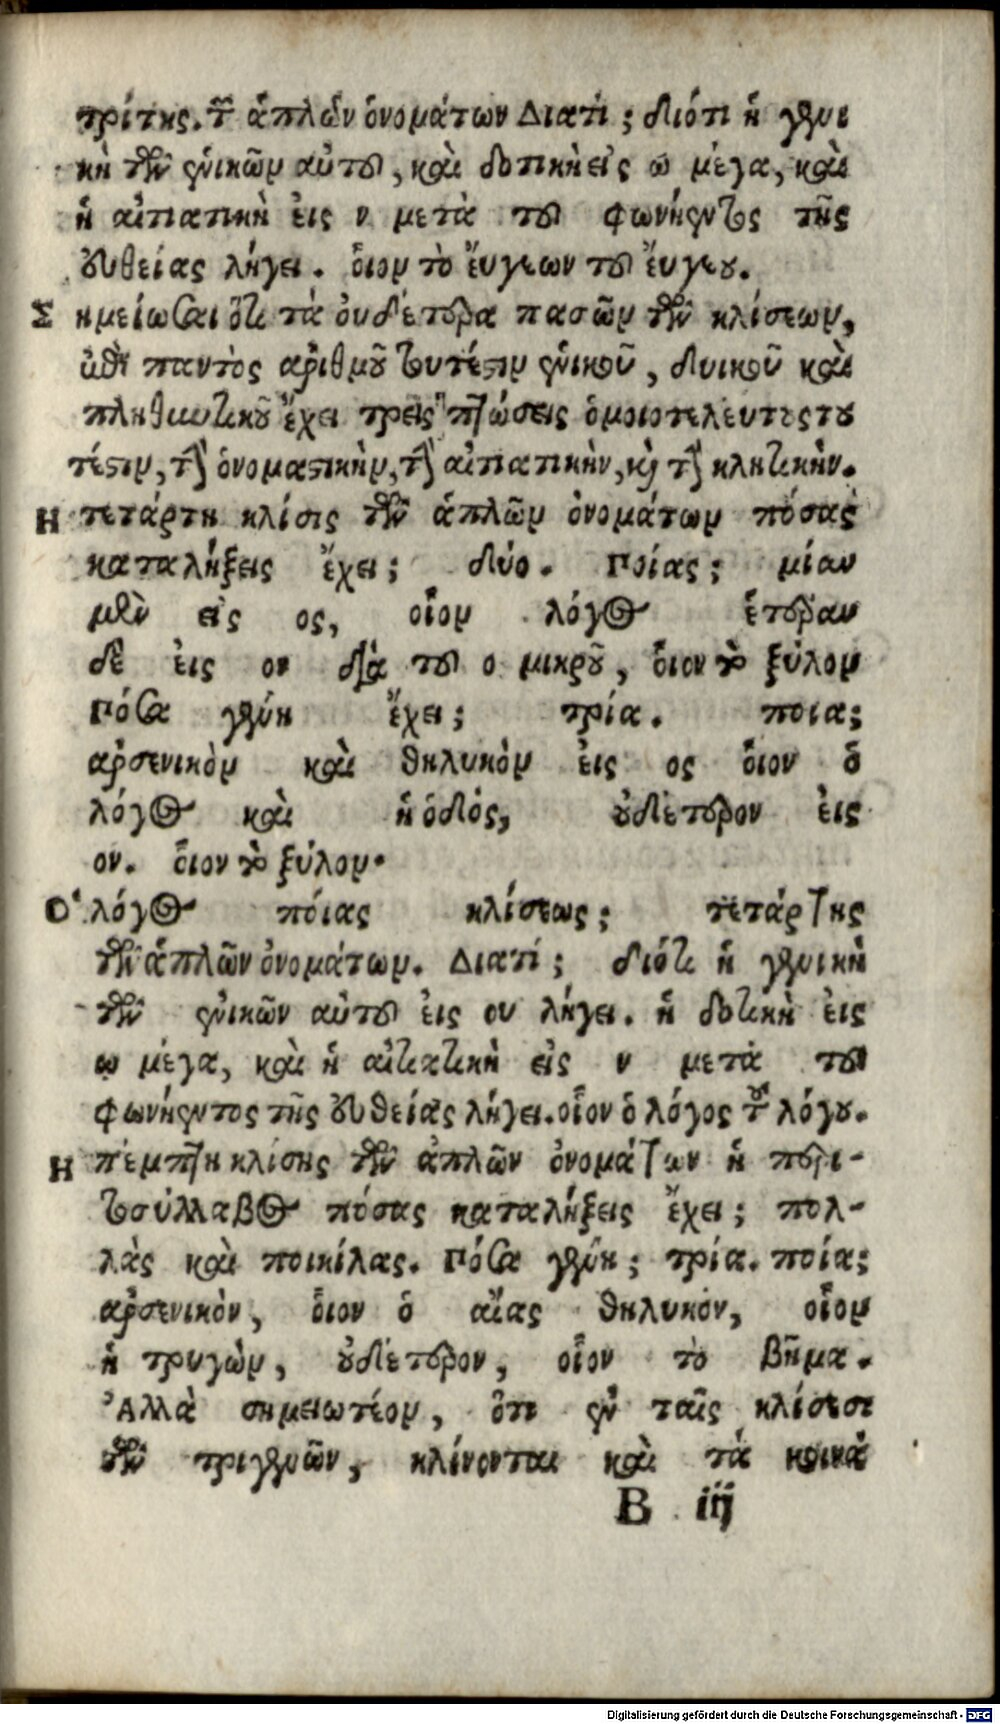 τρίτης. τῶν ἁπλῶν ὀνομάτων Διατί; διότι ἡ γενι
κὴ τῶν ἑνικῶν αὐτοῦ, καὶ δοτικὴ εἰς ω μέγα, καὶ
ἡ αἰτιατικὴ εἰς ν μετὰ τοῦ φωνήεντος τῆς
εὐθείας λήγει. οἷον τὸ εὔγεων τοῦ εὔγεω.
Σ ημείωσαι ὅτι τὰ οὐδέτερα πασῶν τῶν κλίσεων,
ἐπὶ παντὸς ἀριθμοῦ τουτέστιν ἑνικοῦ, δυικοῦ καὶ
πληθυντικοῦ ἔχει τρεῖς πτώσεις ὁμοιοτελεύτους του
τέστιν, τὴν ὀνομαστικὴν, τὴν αἰτιατικὴν, καὶ τὴν κλητικὴν.
Η τετάρτη κλίσις τῶν ἁπλῶν ὀνομάτων πόσας
καταλήξεις ἔχει; δύο. Ποίας; μίαν
μὲν εἰς ος, οἷον λόγος ἑτέραν
δὲ εἰς ον διὰ τοῦ ο μικροῦ, οἷον τὸ ξύλον
Πόσα γένη ἔχει; τρία. ποια;
ἀρσενικὸν καὶ θηλυκὸν εἰς ος οἷον ὁ
λόγος καὶ ἡ ὁδὸς, οὐδέτερον εἰς
ον. οἷον τὸ ξύλον.
Ὁ λόγος ποίας κλίσεως; τετάρτης
τῶν ἁπλῶν ὀνομάτων. Διατί; διότι ἡ γενικὴ
τῶν ἑνικῶν αὐτοῦ εἰς ου λήγει. ἡ δοτικὴ εἰς
ω μέγα, καὶ ἡ αἰτιατικὴ εἰς ν μετὰ τοῦ
φωνήεντος τῆς εὐθείας λήγει. οἷον ὁ λόγος τοῦ λόγου.
Η πέμπτη κλίσης τῶν ἁπλῶν ὀνομάτων ἡ περι-
τοσύλλαβος πόσας καταλήξεις ἔχει; πολ-
λὰς καὶ ποικίλας. Πόσα γένη; τρία. ποία;
ἀρσενικὸν, οἷον ὁ αἴας θηλυκὸν, οἷον
ἡ τρυγὼν, οὐδέτερον, οἷον τὸ βῆμα.
Ἀλλὰ σημειωτέον, ὅτι ἐν ταῖς κλίσεσι
τῶν τριγενῶν, κλίνονται καὶ τὰ κοινὰ
B iij
Digitalisierung gefördert durch die Deutsche Forschungsgemeinschaft - DFG